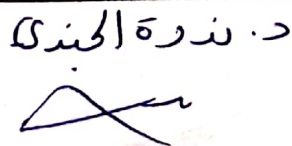 د. ندوة الجندي